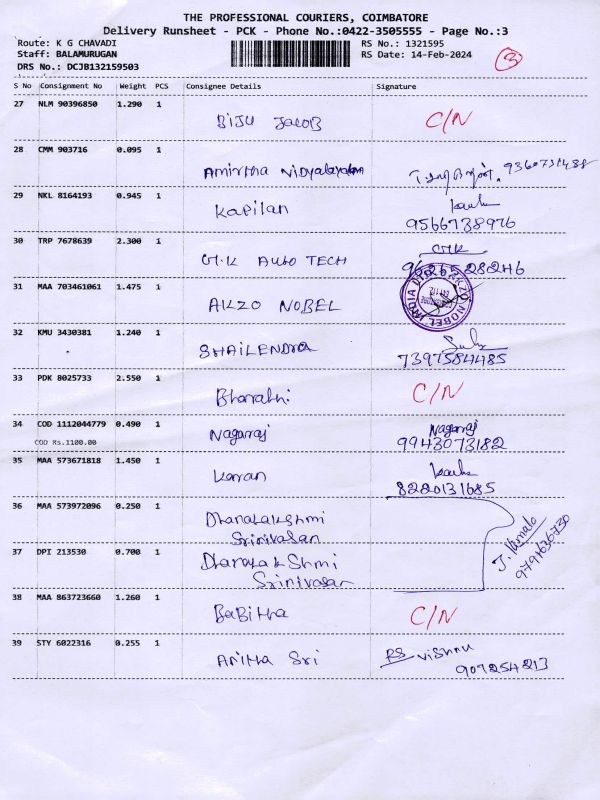 THE PROFESSIONAL COURIERS, COIMBATORE
Delivery Runsheet - PCK - Phone No.:0422-3505555 - Page No.:3
Route: K G CHAVADI RS No.: 1321595
Staff: BALAMURUGAN RS Date: 14-Feb-2024
DRS No.: DCJB132159503
3
S No Consignment No Weight PCS Consignee Details Signature
27 NLM 90396850 1.290 1
BIJU JACOB C/N
28 CMM 903716 0.095 1
Amirtha Vidyalayalam 9360731488
29 NKL 8164193 0.945 1
Kapilan
9566738976
30 TRP 7678639 2.300 1
G.K AUTO TECH G.K
9626528246
31 MAA 703461061 1.475 1
AKZO NOBEL
AKZO NOBEL INDIA
32 KMU 3430381 1.240 1
SHAILENDRA
7397584485
33 PDK 8025733 2.550 1
Bharathi C/N
34 COD 1112044779 0.490 1
COD Rs.1100.00
Nagarraj Nagarraj
9943073182
35 MAA 573671818 1.450 1
Karan
8220131685
36 MAA 573972096 0.250 1
Dhanalakshmi
Srinivasan
37 DPI 213530 0.700 1
Dhanalakshmi
Srinivasan
J. Kamala
9791636730
38 MAA 863723660 1.260 1
Babitha C/N
39 STY 6022316 0.255 1
Anitha Sri RS Vishnu
907254213